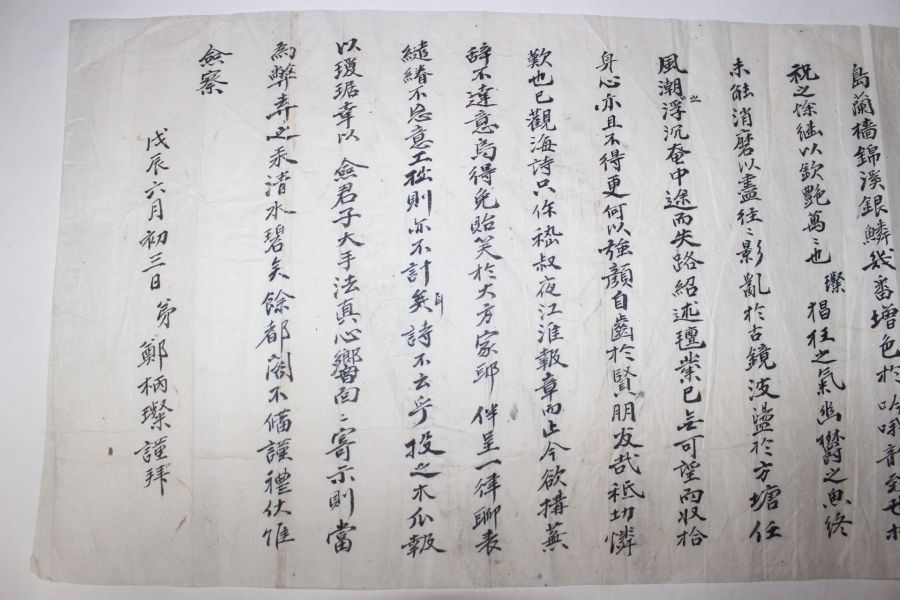 島蘭檣錦溪銀鱗幾番增色於吟哦
祝之餘繼以欽艷萬〻也 璨猖狂之氣幽鬱之思終
未能消磨以盡往〻影亂於古鏡波盪於方塘任
風潮之浮沉奄中途而失路紹述氊業已無可望而收拾
身心亦且不得更何以強顏自齒於賢朋友哉秪切憐
歎也已觀海詩只依嵇叔夜江淮報章而止今欲搆蕪
辭不達意烏得免貽笑於大方家耶 伴呈一律聊表
繾綣不思意工拙則亦不計矣耳詩不云乎投之木瓜報
以瓊琚幸以 僉君子大手法真心嚮面〻寄示則當
為弊弄之釆清水碧矣餘都閣不備謹禮伏惟
僉察
戊辰六月初三日 弟鄭柄璨謹拜